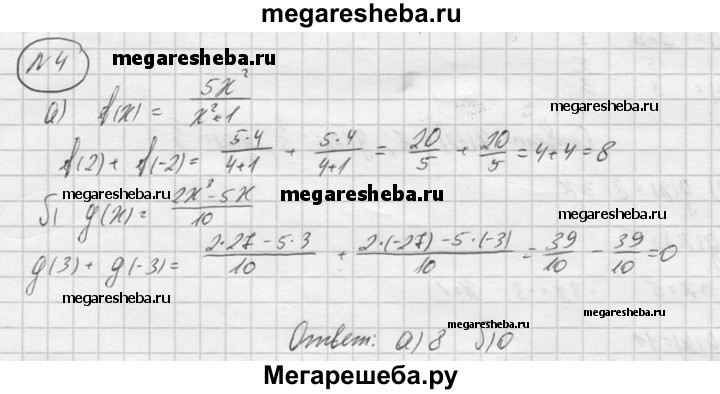 megaresheba.ru
N4 megaresheba.ru
а) f(x) = 5x²/(x²+1) megaresheba.ru
f(2) + f(-2) = 5·4/(4+1) + 5·4/(4+1) = 20/5 + 20/5 = 4+4 = 8
megaresheba.ru megaresheba.ru
б) g(x) = (2x³-5x)/10 megaresheba.ru
g(3) + g(-3) = (2·27-5·3)/10 + (2·(-27)-5·(-3))/10 = 39/10 - 39/10 = 0
megaresheba.ru megaresheba.ru
Ответ: а) 8 б) 0 megaresheba.ru
Мегарешеба.ру